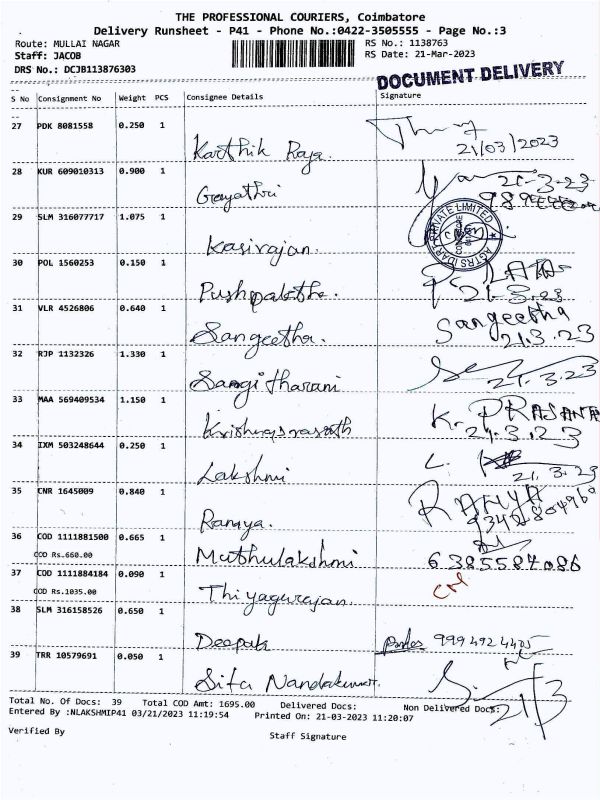 THE PROFESSIONAL COURIERS, Coimbatore
Delivery Runsheet - P41 - Phone No.:0422-3505555 - Page No.:3
Route: MULLAI NAGAR RS No.: 1138763
Staff: JACOB RS Date: 21-Mar-2023
DRS No.: DCJB113876303
DOCUMENT DELIVERY
S No Consignment No Weight PCS Consignee Details Signature
27 PDK 8081558 0.250 1
Karthik Raja. 21/03/2023
28 KUR 609010313 0.900 1
Gayathri 21-3-23
29 SLM 316077717 1.075 1
PRIVATE LIMITED
Kasirajan.
30 POL 1560253 0.150 1
Pushpalatha. LATA
21.3.23
31 VLR 4526806 0.640 1
Sangeetha. Sangeetha
21.3.23
32 RJP 1132326 1.330 1
Sangitharani 21.3.23
33 MAA 569409534 1.150 1
K. PRASANTA
21.3.23
34 IXM 503248644 0.250 1
Lakshmi L.
21.3.23
35 CNR 1645009 0.840 1
Ramya. RAMYA
36 COD 1111881500 0.665 1
COD Rs.660.00
Muthulakshmi 6385587086
37 COD 1111884184 0.090 1
COD Rs.1035.00
Thiyagurajan.
38 SLM 316158526 0.650 1
Deepak
39 TRR 10579691 0.050 1
Sita Nandakumar. 21/3
Total No. Of Docs: 39 Total COD Amt: 1695.00 Delivered Docs: Non Delivered Docs:
Entered By :NLAKSHMIP41 03/21/2023 11:19:54 Printed On: 21-03-2023 11:20:07
Verified By
Staff Signature